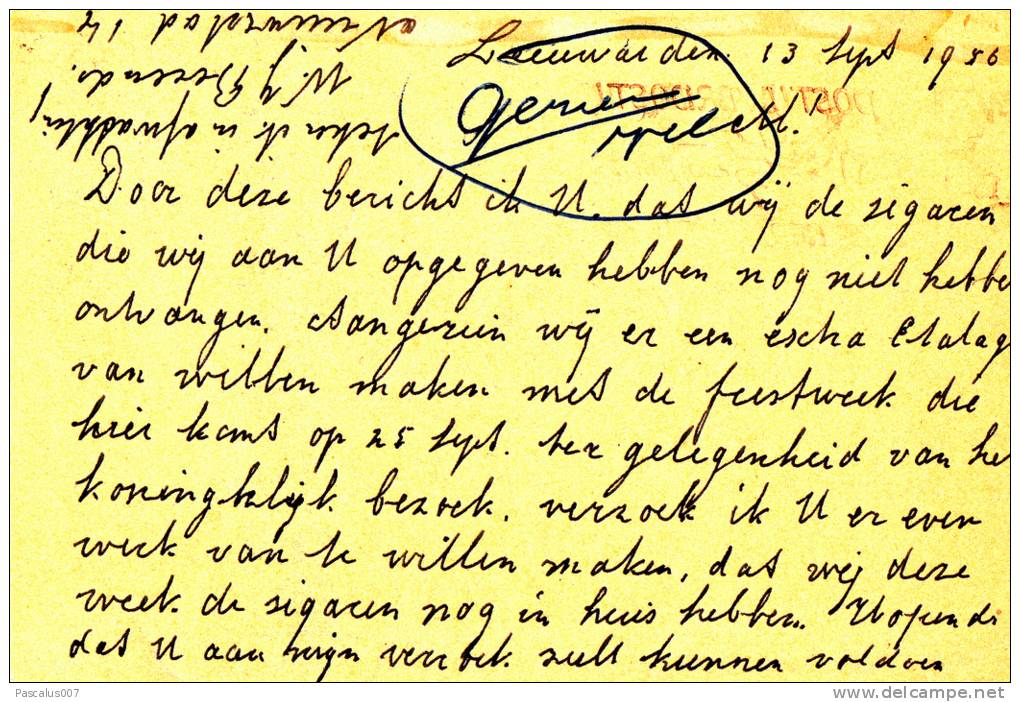 Leeuwarden 13 Sept 1956
M.
Door deze bericht ik U. dat wij de sigaren
die wij aan U opgegeven hebben nog niet hebbe
ontvangen. Aangezien wij er een escha Etalag
van willen maken met de feestweek die
hier komt op 25 Sept. ter gelegenheid van he
koningklijk bezoek. verzoek ik U er even
werk van te willen maken, dat wij deze
week de sigaren nog in huis hebben. Hopende
dat U aan mijn verzoek zult kunnen voldoen
teken ik in afwachting
W. J. Berends.
Nieuwestad
Pascalus007
delcampe.net